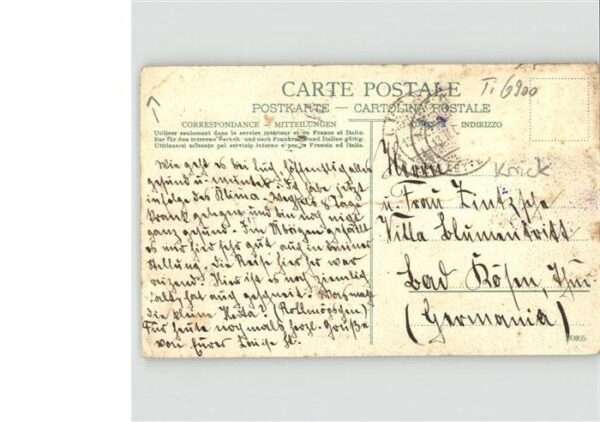 CARTE POSTALE
POSTKARTE — CARTOLINA POSTALE
CORRESPONDANCE - MITTEILUNGEN
INDIRIZZO
Ti 6900
Utilizer seulement dans le service intérieur et en France et Italie.
Nur für den internen Verkehr und nach Frankreich und Italien gültig.
Utilizzarsi soltanto pel servizio interno e per la Francia ed Italia.
Wie geht es bei Euch, hoffentlich alles
gesund u. munter. Ich habe jetzt
infolge des Klima 8 Tage
krank gelegen und bin noch nicht
ganz gesund. Im Übrigen gefällt
es mir hier sehr gut, auch in meiner
Stellung, die Reise hierher war
reizend. Hier ist es noch ziemlich
kalt, hat auch geschneit. Was macht
die kleine (Rollmöpschen)
Für heute nochmals herzl. Grüße
von Eurer
Herrn
Krick
u. Frau Zintzsche
Villa Blumentritt
Bad Kösen, Thür
(Germania)